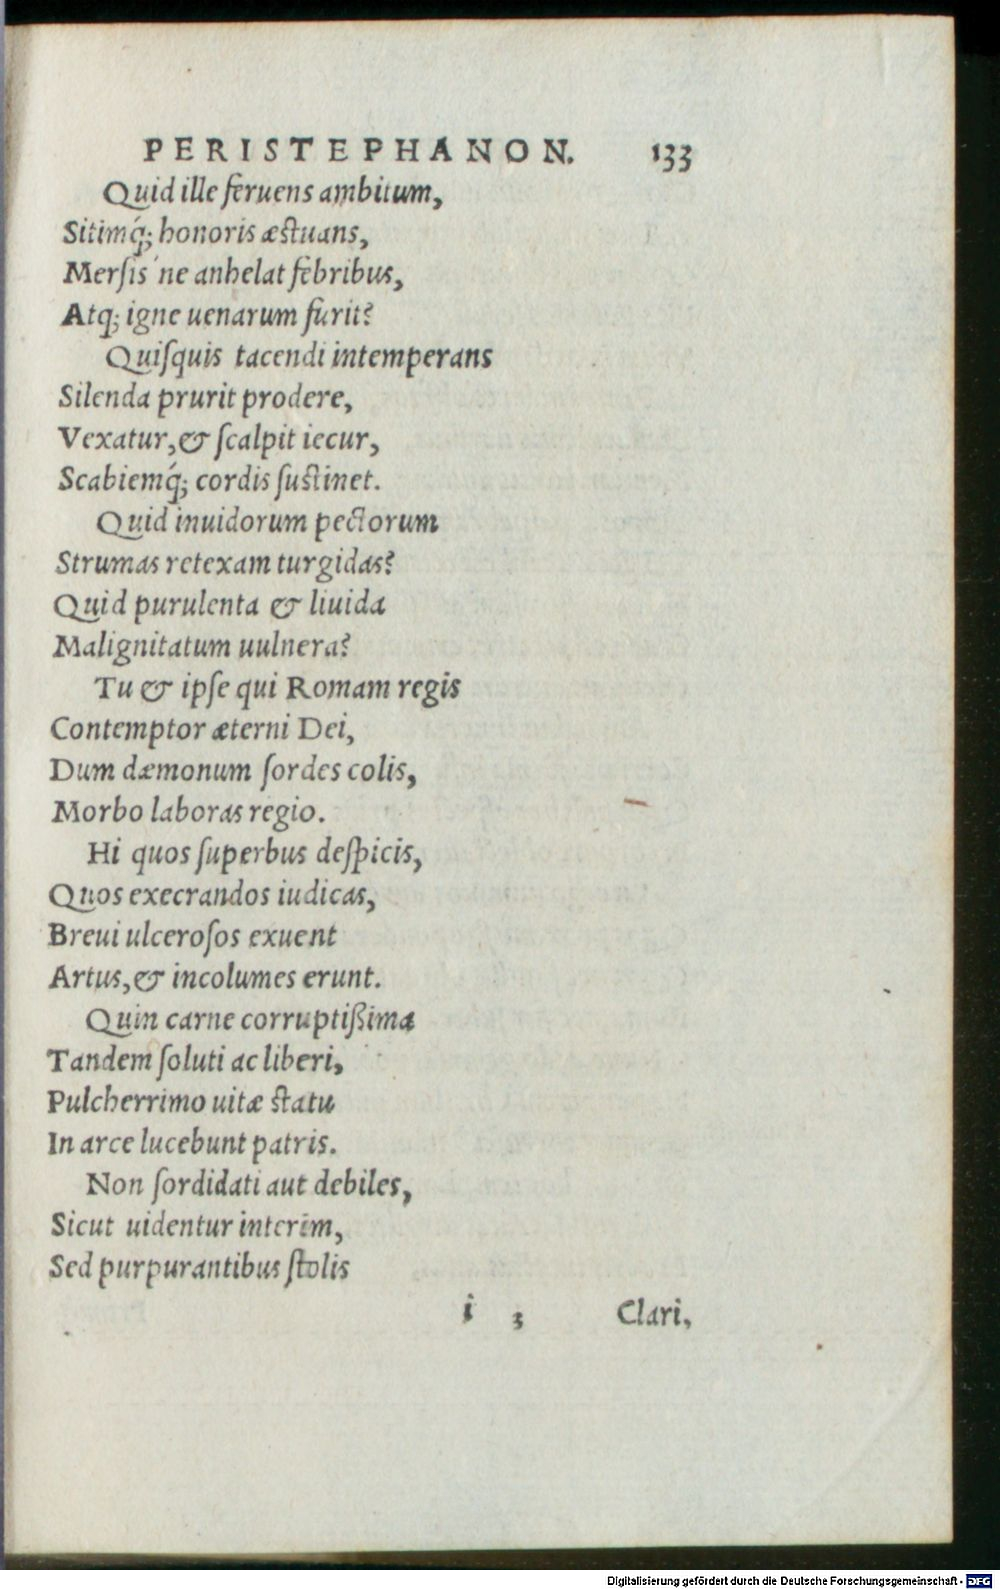 PERISTEPHANON. 133
Quid ille feruens ambitum,
Sitimq́; honoris æstuans,
Mersis'ne anhelat febribus,
Atq; igne uenarum furit?
Quiſquis tacendi intemperans
Silenda prurit prodere,
Vexatur, & ſcalpit iecur,
Scabiemq́; cordis ſustinet.
Quid inuidorum pectorum
Strumas retexam turgidas?
Quid purulenta & liuida
Malignitatum uulnera?
Tu & ipſe qui Romam regis
Contemptor æterni Dei,
Dum dæmonum ſordes colis,
Morbo laboras regio.
Hi quos ſuperbus deſpicis,
Quos execrandos iudicas,
Breui ulceroſos exuent
Artus, & incolumes erunt.
Quin carne corruptißima
Tandem ſoluti ac liberi,
Pulcherrimo uitæ statu
In arce lucebunt patris.
Non ſordidati aut debiles,
Sicut uidentur interim,
Sed purpurantibus ſtolis
i 3 Clari,
Digitalisierung gefördert durch die Deutsche Forschungsgemeinschaft - DFG